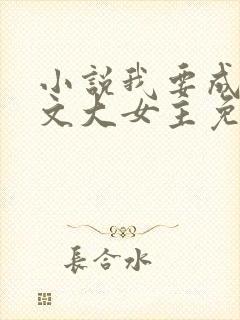 小說我要成
文大女主免
長合水